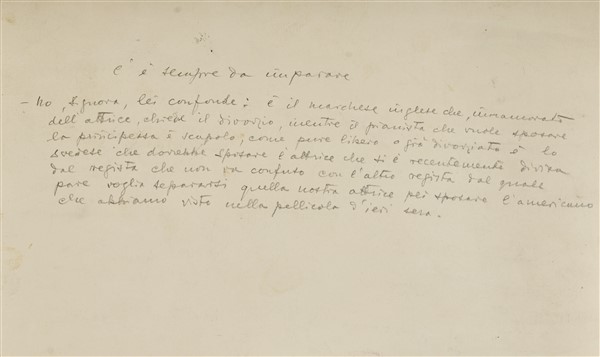 C'è sempre da imparare
– No, Signora, lei confonde: è il marchese inglese che, innamorato
dell'attrice, chiede il divorzio, mentre il pianista che vuole sposare
la principessa è scapolo, come pure libero e già divorziato è lo
svedese che dovrebbe sposare l'attrice che si è recentemente divisa
dal regista che non va confuso con l'altro regista dal quale
pare voglia separarsi quella nostra attrice per sposare l'americano
che abbiamo visto nella pellicola d'ieri sera.